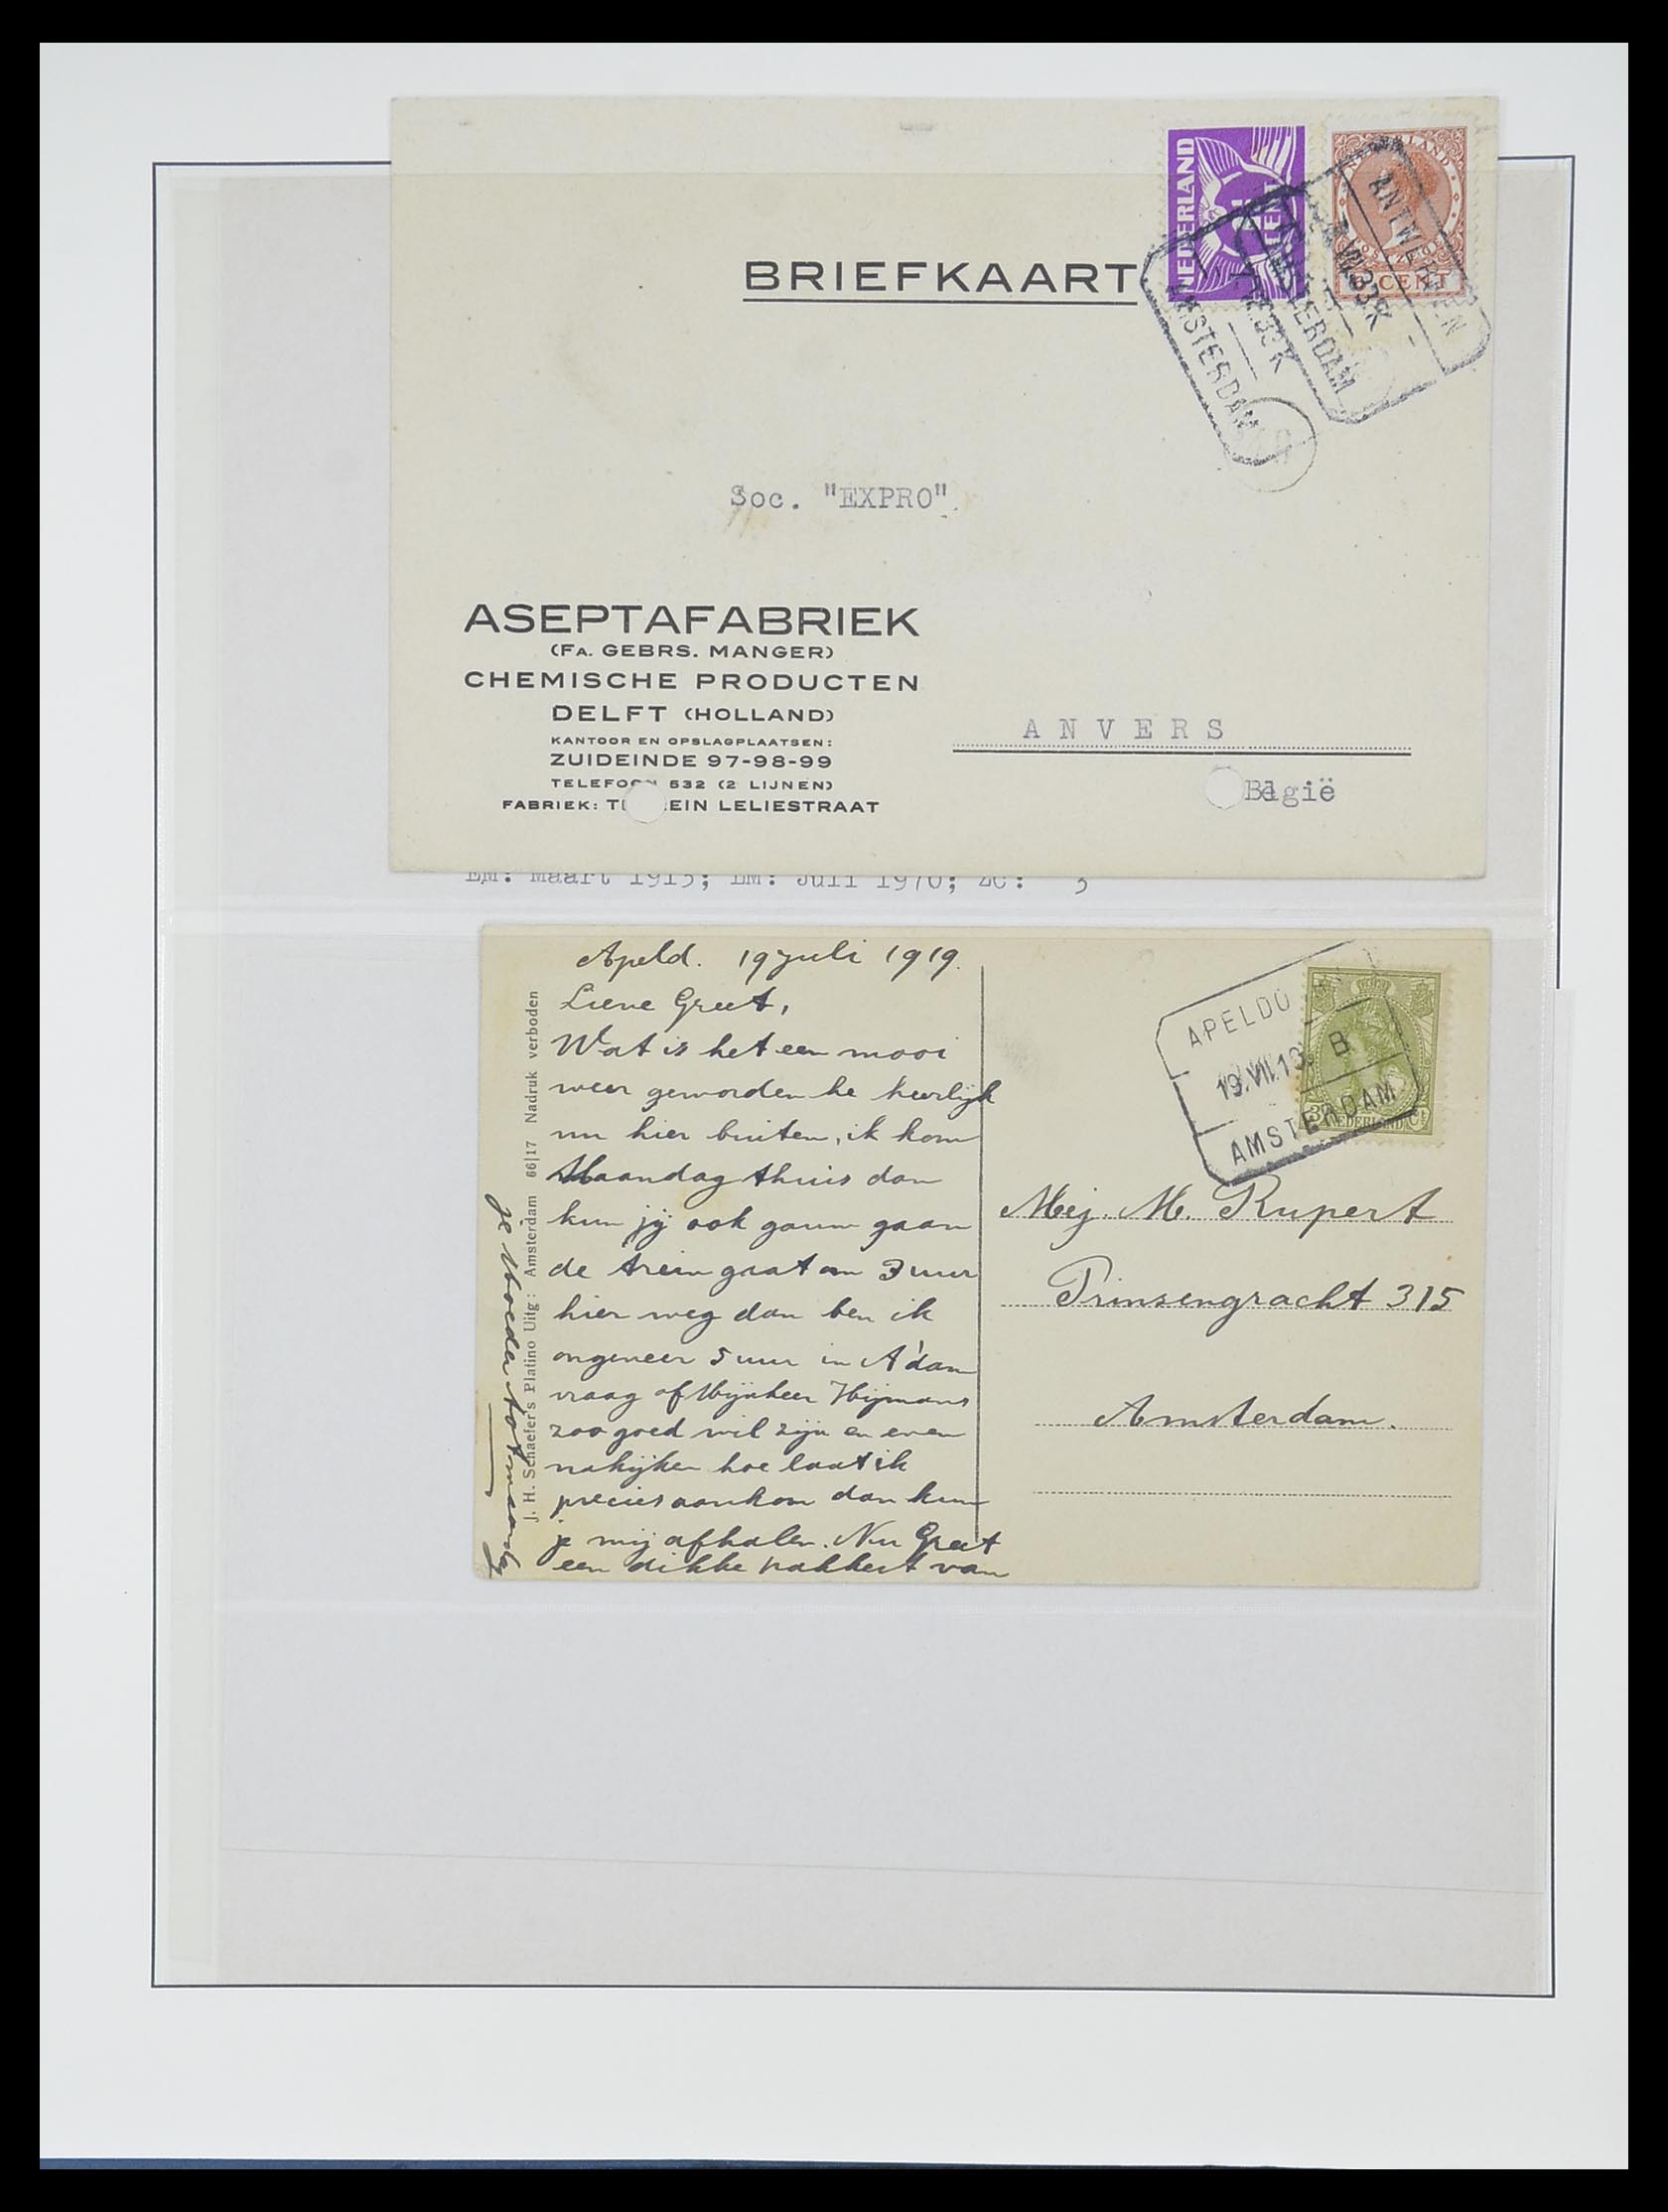 NEDERLAND
CENT
NEDERLAND
CENT
ANTWERPEN
VII.33K
AMSTERDAM
VII.33K
AMSTERDAM
BRIEFKAART
Soc. "EXPRO"
ASEPTAFABRIEK
(FA. GEBRS. MANGER)
CHEMISCHE PRODUCTEN
DELFT (HOLLAND)
KANTOOR EN OPSLAGPLAATSEN:
ZUIDEINDE 97-98-99
TELEFOON 532 (2 LIJNEN)
FABRIEK: T EIN LELIESTRAAT
ANVERS
België
EM: Maart 1915; LM: Juli 1970; ZC: 3
Apeld. 19 Juli 1919.
Lieve Greet,
Wat is het een mooi
weer geworden he heerlijk
nu hier buiten, ik kom
Maandag thuis dan
kun jij ook gauw gaan
de trein gaat om 3 uur
hier weg dan ben ik
ongeveer 5 uur in A'dam
vraag of Mijnheer Heijmans
zoo goed wil zijn en even
nakijken hoe laat ik
precies aankom dan kun
je mij afhalen. Nu Greet
een dikke pakkert van
je Moeder
J. H. Schaefer's Platino Uitg: Amsterdam 66|17 Nadruk verboden
APELDO
19.VII.19. B
AMSTERDAM
3 NEDERLAND Ct
Mej. M. Rupert
Prinsengracht 315
Amsterdam.